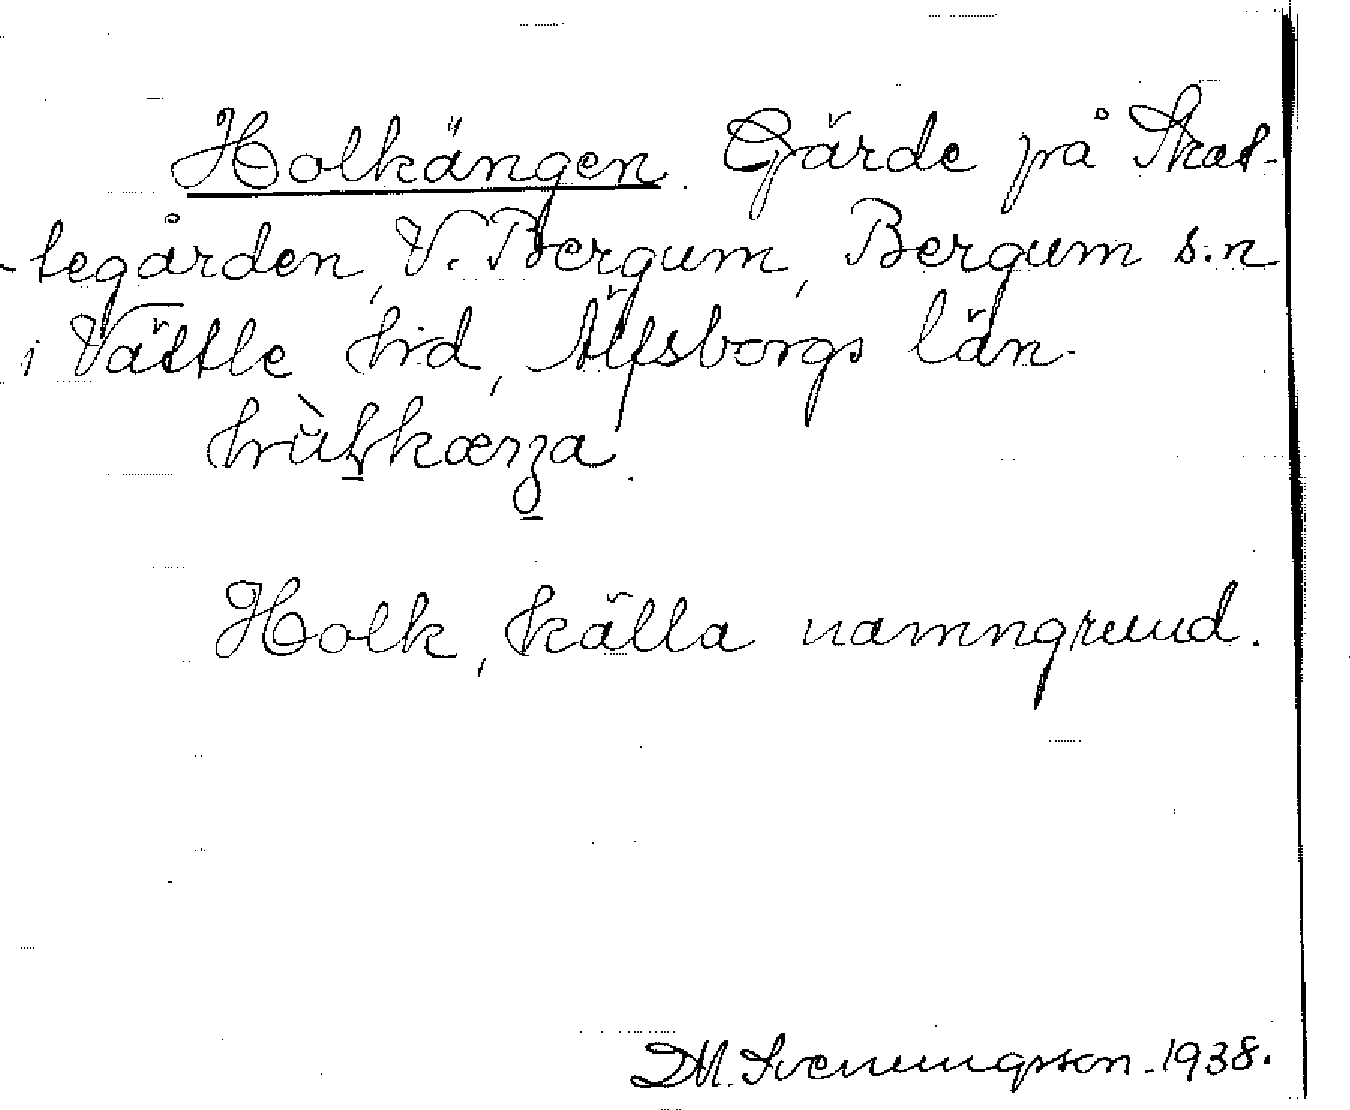 Holkängen. Gärde på Skat-
-tegården, V. Bergum, Bergum s.n
i Vättle hrd, Älfsborgs län.
Holk, källa namngrund.
D.M. Svenningsson. 1938.